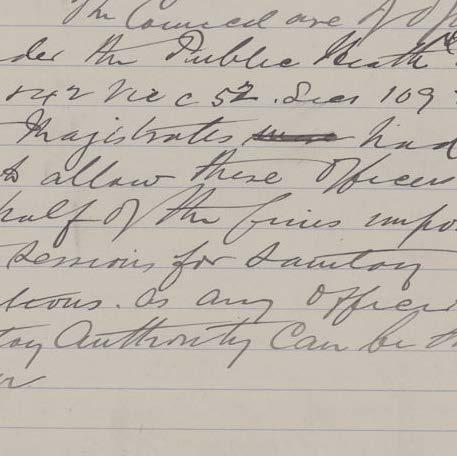 The Council are of op
der the Public Health
& 42 Vic c 52. Secs 109
Magistrates had
to allow these officers
half of the fines impo
sessions for Sanitary
tions. as any officer
tary Authority can be th